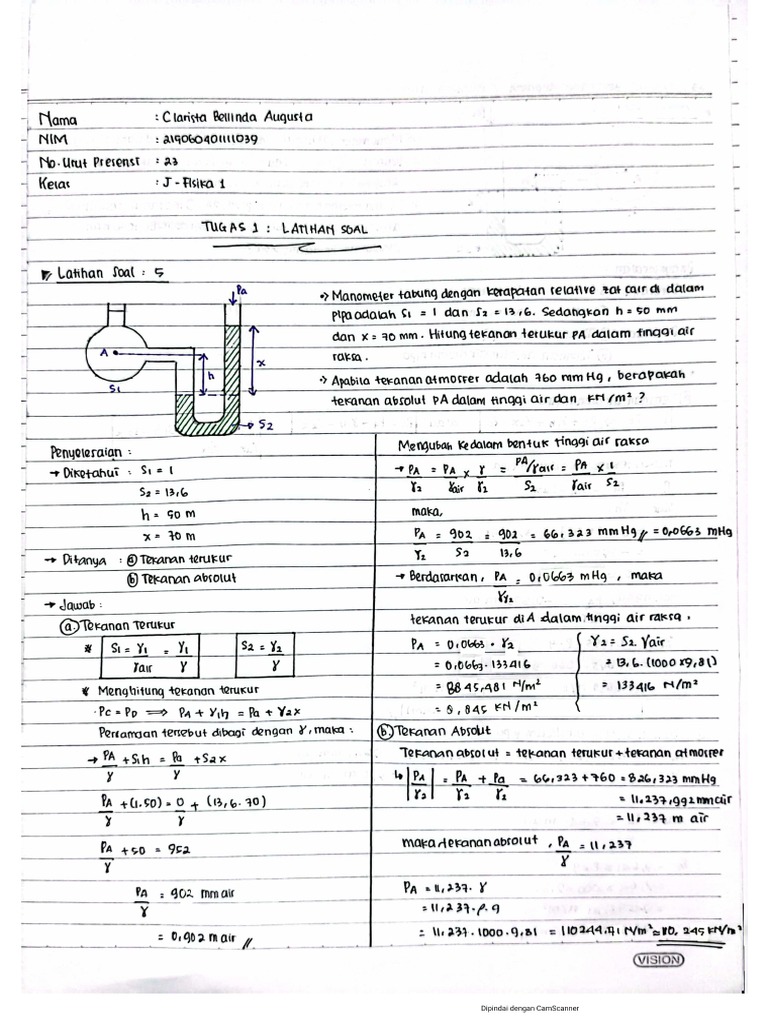 Nama : Clarista Bellinda Augusta
NIM : 21906040111039
No. Urut Presensi : 23
Kelas : J - Fisika 1
TUGAS 1 : LATIHAN SOAL
Latihan Soal : 5
Pa
A
h
x
S1
S2
→ Manometer tabung dengan kerapatan relative zat cair di dalam
pipa adalah S1 = 1 dan S2 = 13,6. Sedangkan h = 50 mm
dan x = 70 mm. Hitung tekanan terukur PA dalam tinggi air
raksa.
→ Apabila tekanan atmosfer adalah 760 mm Hg, berapakah
tekanan absolut PA dalam tinggi air dan KN/m² ?
Penyelesaian :
→ Diketahui : S1 = 1
S2 = 13,6
h = 50 m
x = 70 m
→ Ditanya : ⓐ Tekanan terukur
ⓑ Tekanan absolut
→ Jawab :
ⓐ Tekanan Terukur
* S1 = γ1/γair = γ1/γ S2 = γ2/γ
* Menghitung tekanan terukur
PC = PD ⟹ PA + γ1h = Pa + γ2x
Persamaan tersebut dibagi dengan γ, maka :
→ PA/γ + S1h = Pa/γ + S2x
PA/γ + (1.50) = 0/γ + (13,6.70)
PA/γ + 50 = 952
PA/γ = 902 mm air
= 0,902 m air //
Mengubah kedalam bentuk tinggi air raksa
→ PA/γ2 = PA/γair x γ/γ2 = PA/γair / S2 = PA/γair x 1/S2
maka,
PA/γ2 = 902/S2 = 902/13,6 = 66,323 mm Hg // = 0,0663 mHg
→ Berdasarkan, PA/γ2 = 0,0663 mHg , maka
tekanan terukur di A dalam tinggi air raksa.
PA = 0,0663 . γ2
= 0,0663 . 133416
= 8845,481 N/m²
= 8,845 KN/m²
γ2 = S2. γair
= 13,6. (1000 x 9,81)
= 133416 N/m²
ⓑ Tekanan Absolut
Tekanan absolut = tekanan terukur + tekanan atmosfer
↳ |PA/γ2| = PA/γ2 + Pa/γ2 = 66,323 + 760 = 826,323 mm Hg
= 11.237,992 mm air
= 11,237 m air
maka tekanan absolut , PA/γ = 11,237
PA = 11,237. γ
= 11,237. ρ. g
= 11,237. 1000. 9,81 = 110244,71 N/m² ≈ 110, 245 KN/m²
VISION
Dipindai dengan CamScanner